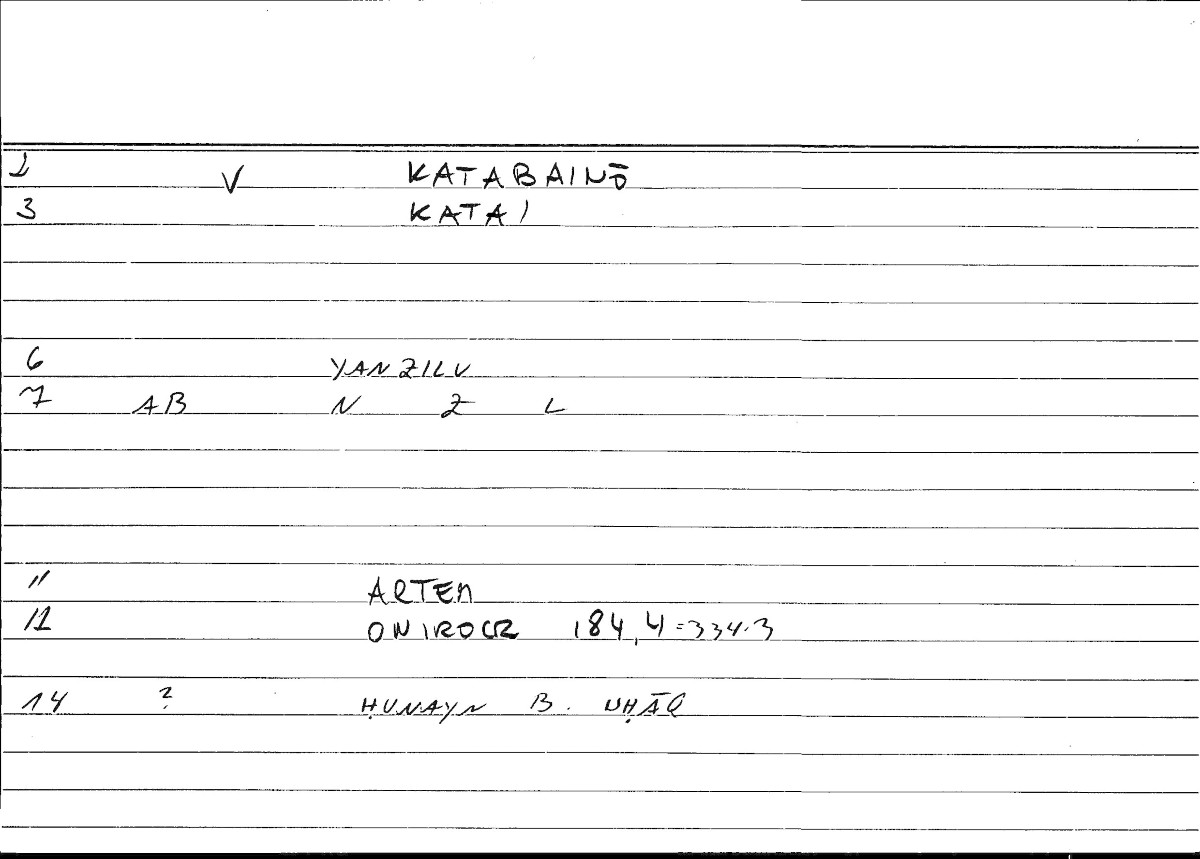 2 V KATABAINŌ
3 KATA/
6 YANZILU
7 AB N Z L
11 ARTEM
12 ONIROCR 184,4=334.3
14 ? ḤUNAYN B. ISḤĀQ